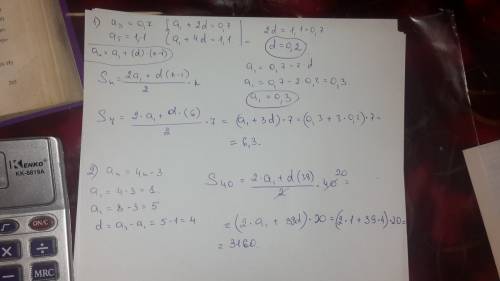 1) a₃ = 0,7 { a₁ + 2d = 0,7
a₅ = 1,1 { a₁ + 4d = 1,1 | -
2d = 1,1 - 0,7
d = 0,2
aₙ = a₁ + (d) · (n-1)
a₁ = 0,7 - 2 · d
a₁ = 0,7 - 2 · 0,2 = 0,3
a₁ = 0,3
Sₙ = (2a₁ + d(n-1))/2 · n
S₇ = (2 · a₁ + d · (6))/2 · 7 = (a₁ + 3d) · 7 = (0,3 + 3 · 0,2) · 7 =
= 6,3.
2) aₙ = 4n - 3
a₁ = 4 - 3 = 1
a₂ = 8 - 3 = 5
d = a₂ - a₁ = 5 - 1 = 4
S₄₀ = (2 · a₁ + d(39))/2 · 40 20 =
= (2 · a₁ + 39d) · 20 = (2 · 1 + 39 · 4) · 20 =
= 3160.
KENKO
KK-8819A
ON/C
MRC